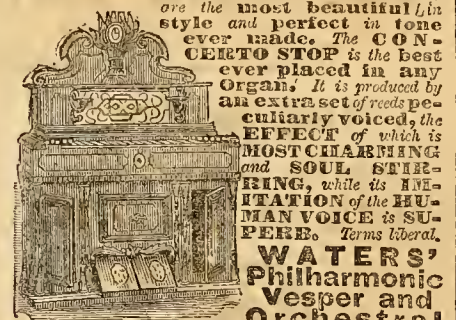 are the most beautiful in
style and perfect in tone
ever made. The CON-
CERTO STOP is the best
ever placed in any
Organ. It is produced by
an extra set of reeds pe-
culiarly voiced, the
EFFECT of which is
MOST CHARMING
and SOUL STIR-
RING, while its IM-
ITATION of the HU-
MAN VOICE is SU-
PERB. Terms liberal.
WATERS'
Philharmonic
Vesper and
Orchestral